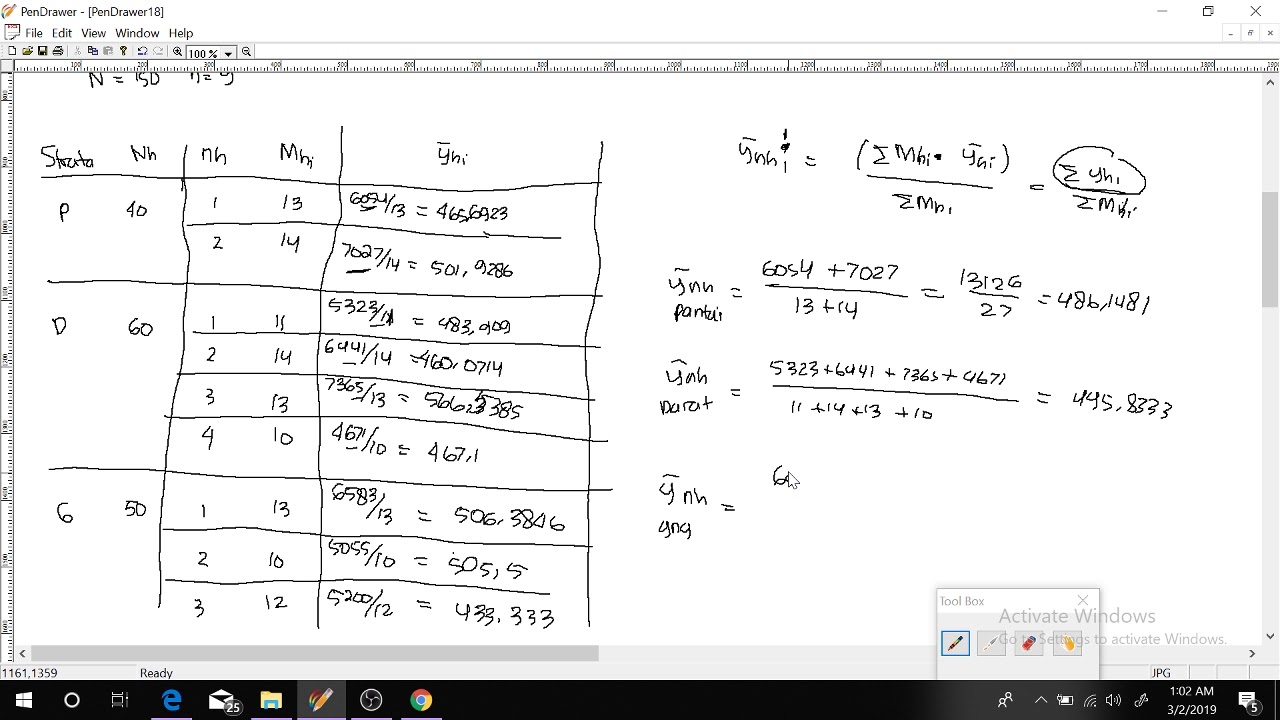 PenDrawer - [PenDrawer18]
File Edit View Window Help
100 %
N = 150 n = 9
Strata Nh nh Mhi ȳhi
P 40 1 13 6054/13 = 465,6923
2 14 7027/14 = 501,9286
D 60 1 11 5323/11 = 483,909
2 14 6441/14 = 460,0714
3 13 7365/13 = 566,5385
4 10 4671/10 = 467,1
G 50 1 13 6583/13 = 506,3846
2 10 5055/10 = 505,5
3 12 5200/12 = 433.333
ȳnhi = (ΣMhi • ȳhi) / ΣMhi = Σyhi / ΣMhi
ȳnh pantai = 6054 + 7027 / 13 + 14 = 13126 / 27 = 486,1481
ȳnh darat = 5323 + 6441 + 7365 + 4671 / 11 + 14 + 13 + 10 = 495,8333
ȳnh gng =
Tool Box
Activate Windows
Go to Settings to activate Windows.
1161,1359 Ready JPG
25
1:02 AM
3/2/2019
5